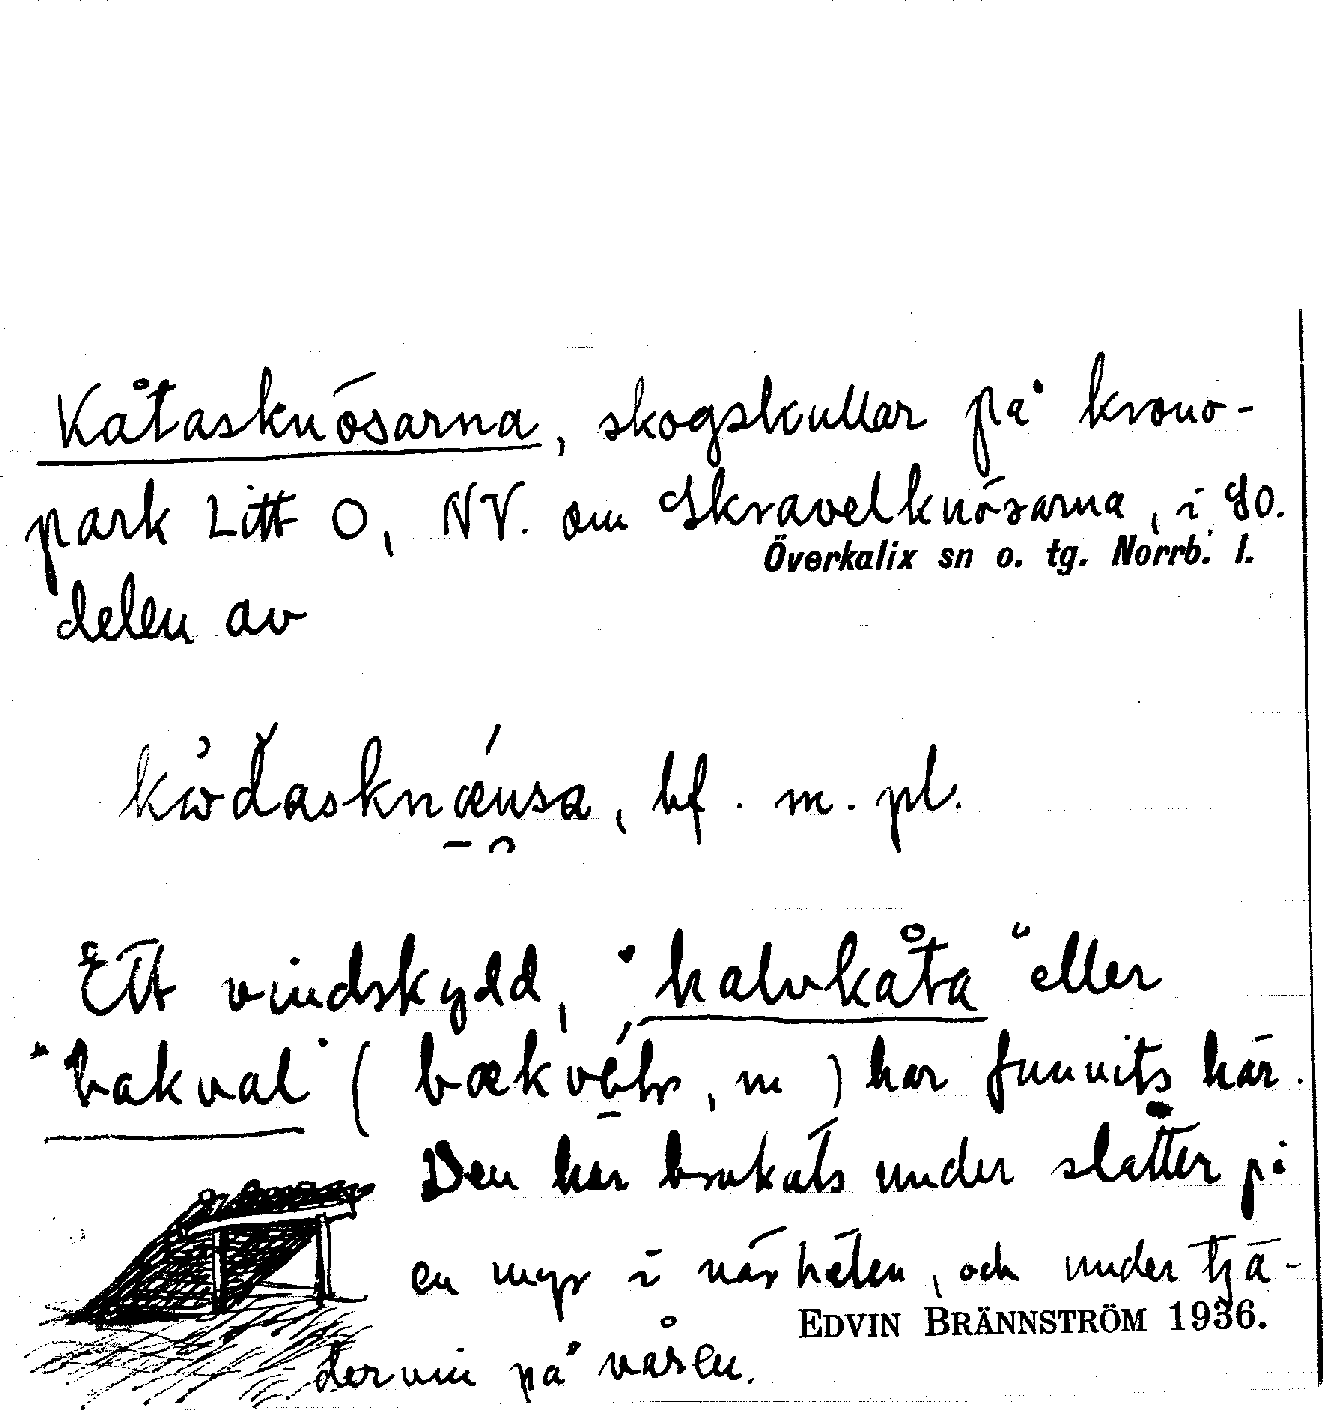 Kåtasknösarna, skogskullar på krono-
park Litt O, NV. om Skravelknösarna, i SO.
Överkalix sn o. tg. Norrb. l.
delen av
bf. m. pl.
Ett vindskydd, "halvkåta" eller
"bakval" ( , m) har funnits här.
Den har brukats under slåtter på
en myr i närheten, och under tjä-
EDVIN BRÄNNSTRÖM 1936.
dervin på våren.